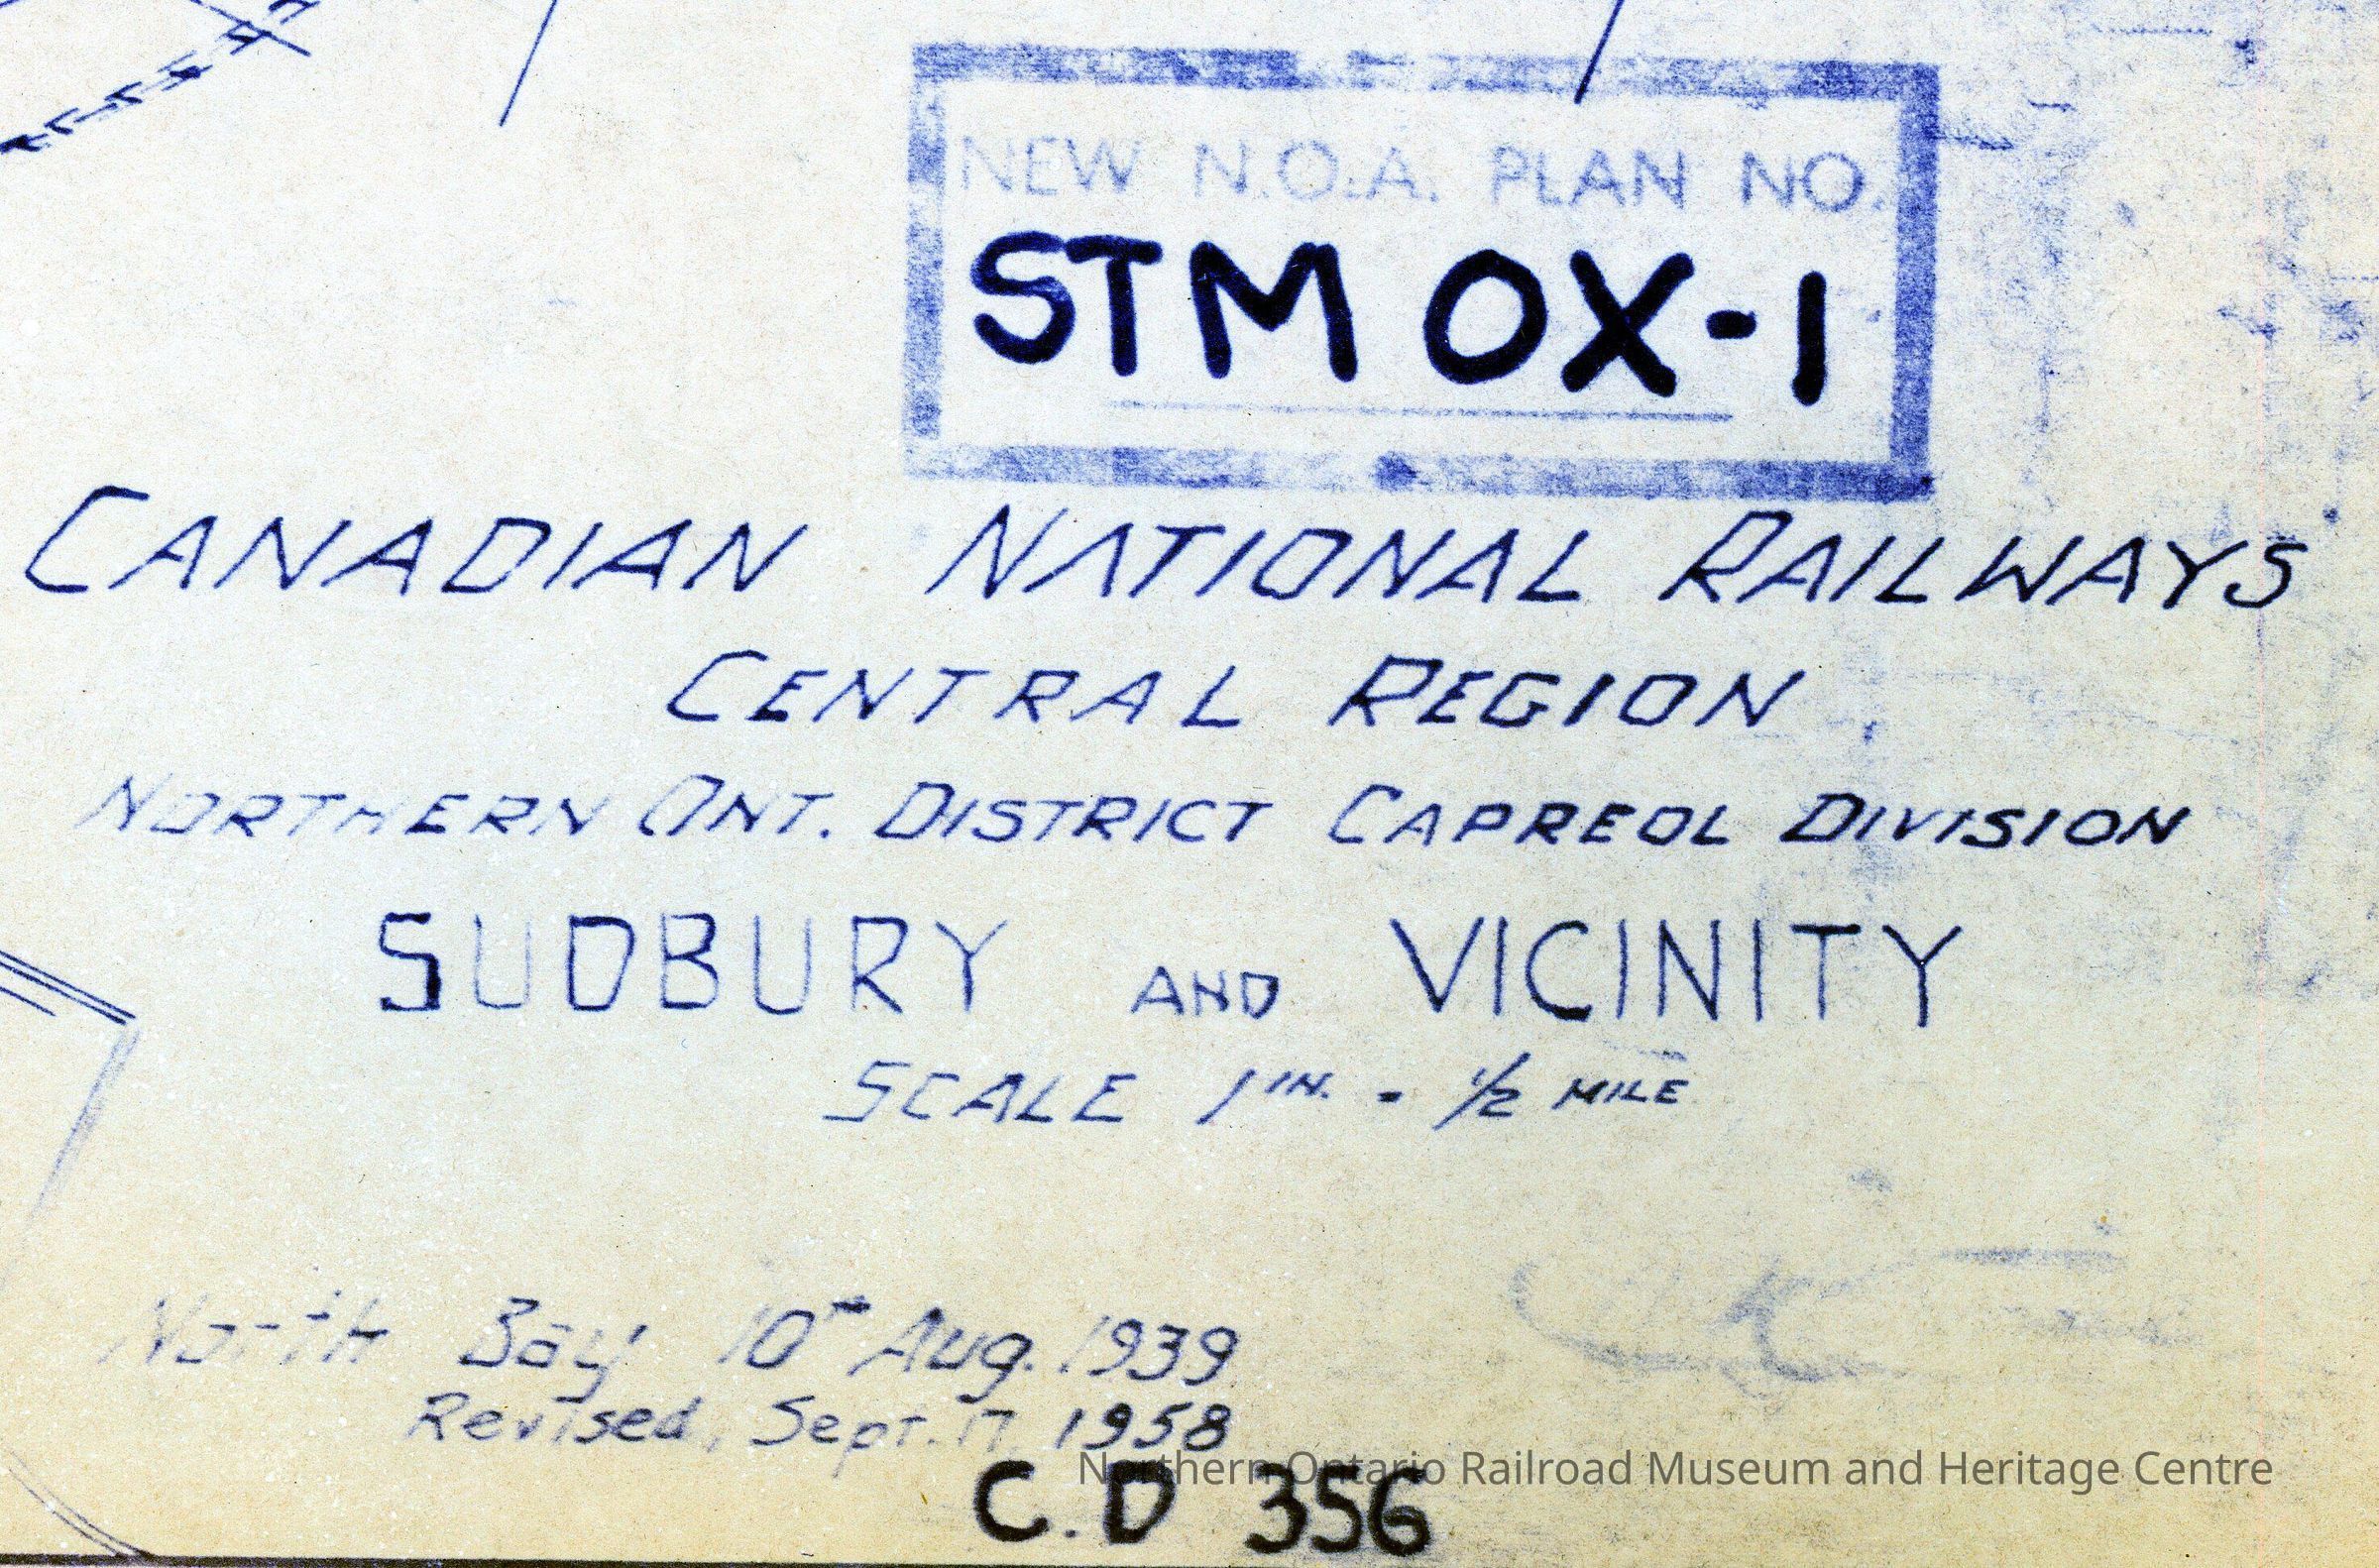 NEW N.O.A. PLAN NO.
STM OX-1
CANADIAN NATIONAL RAILWAYS
CENTRAL REGION
NORTHERN ONT. DISTRICT CAPREOL DIVISION
SUDBURY AND VICINITY
SCALE 1 IN. - 1/2 MILE
North Bay 10th Aug. 1939
Revised, Sept. 17, 1958
Northern Ontario Railroad Museum and Heritage Centre
C.D 356